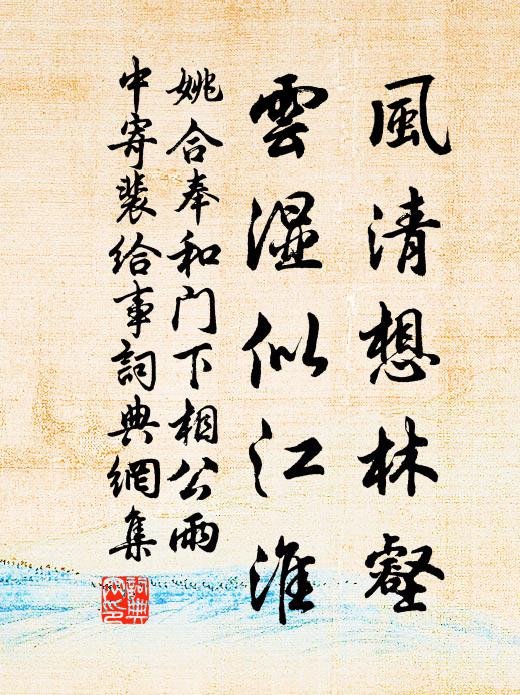 風清想林壑
雲濕似江淮
姚合奉和门下相公雨
中寄裴给事詞典網集